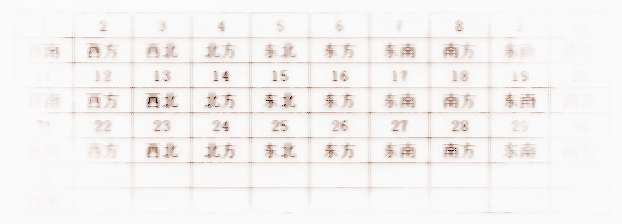 2 3 4 5 6 7 8
西方 西北 北方 东北 东方 东南 南方 东南
12 13 14 15 16 17 18 19
西方 西北 北方 东北 东方 东南 南方 东南
22 23 24 25 26 27 28 29
西方 西北 北方 东北 东方 东南 南方 东南